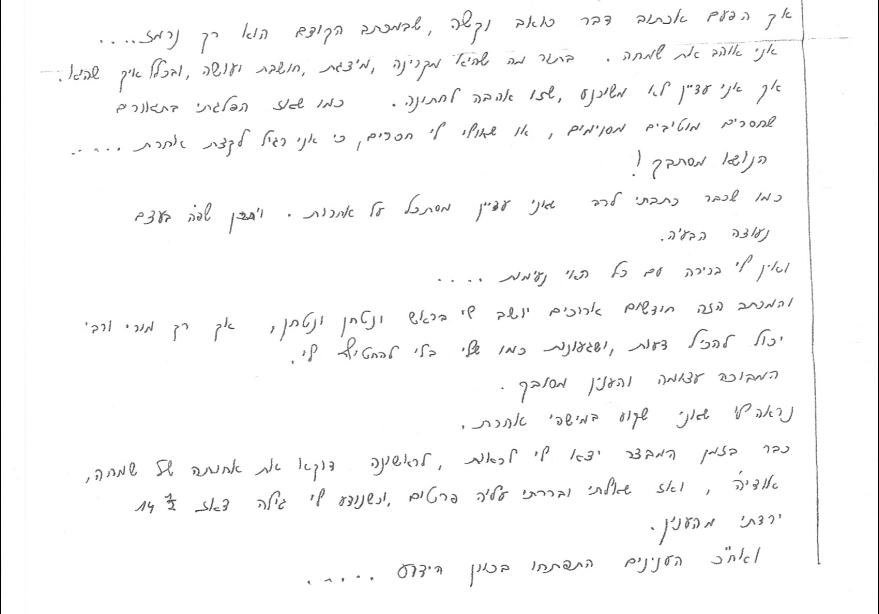 אך הפעם אכתוב דבר כואב וקשה, שבמכתב הקודם הוא רק נרמז....
אני אוהב את שמחה. בתור מה שהיא מקרינה, מייצגת, חושבת ועושה, ובכלל איך שהיא.
אך אני עדיין לא משוכנע, שזו אהבה לחתונה. כמו שאז הפלגתי בתאורים
שחסרים מוטיבים מסוימים, או שאולי לי חסרים, כי אני רגיל לקצת אחרת .....
הנושא מסתבך!
כמו שכבר כתבתי לרב שאני עדיין מסתכל על אחרות. ויתכן שפה בעצם
נעוצה הבעיה.
ואין לי ברירה עם כל האי נעימות ....
והמכתב הזה חודשים ארוכים יושב לי בראש ונטחן ונטחן, אך רק מורי ורבי
יכול להכיל דעות, ושגעונות כמו שלי בלי להחטיף לי.
המבוכה עצומה והענין מסובך.
נראה לי שאני שקוע במישהי אחרת.
כבר בזמן המבצר יצא לי לראות, לראשונה דוקא את אחותה של שמחה,
אודיה, ואז שאלתי ובררתי עליה פרטים, וכשנודע לי גילה דאז 14 1/2
ירדתי מהענין.
ואח"כ הענינים התפתחו בכוון הידוע .....